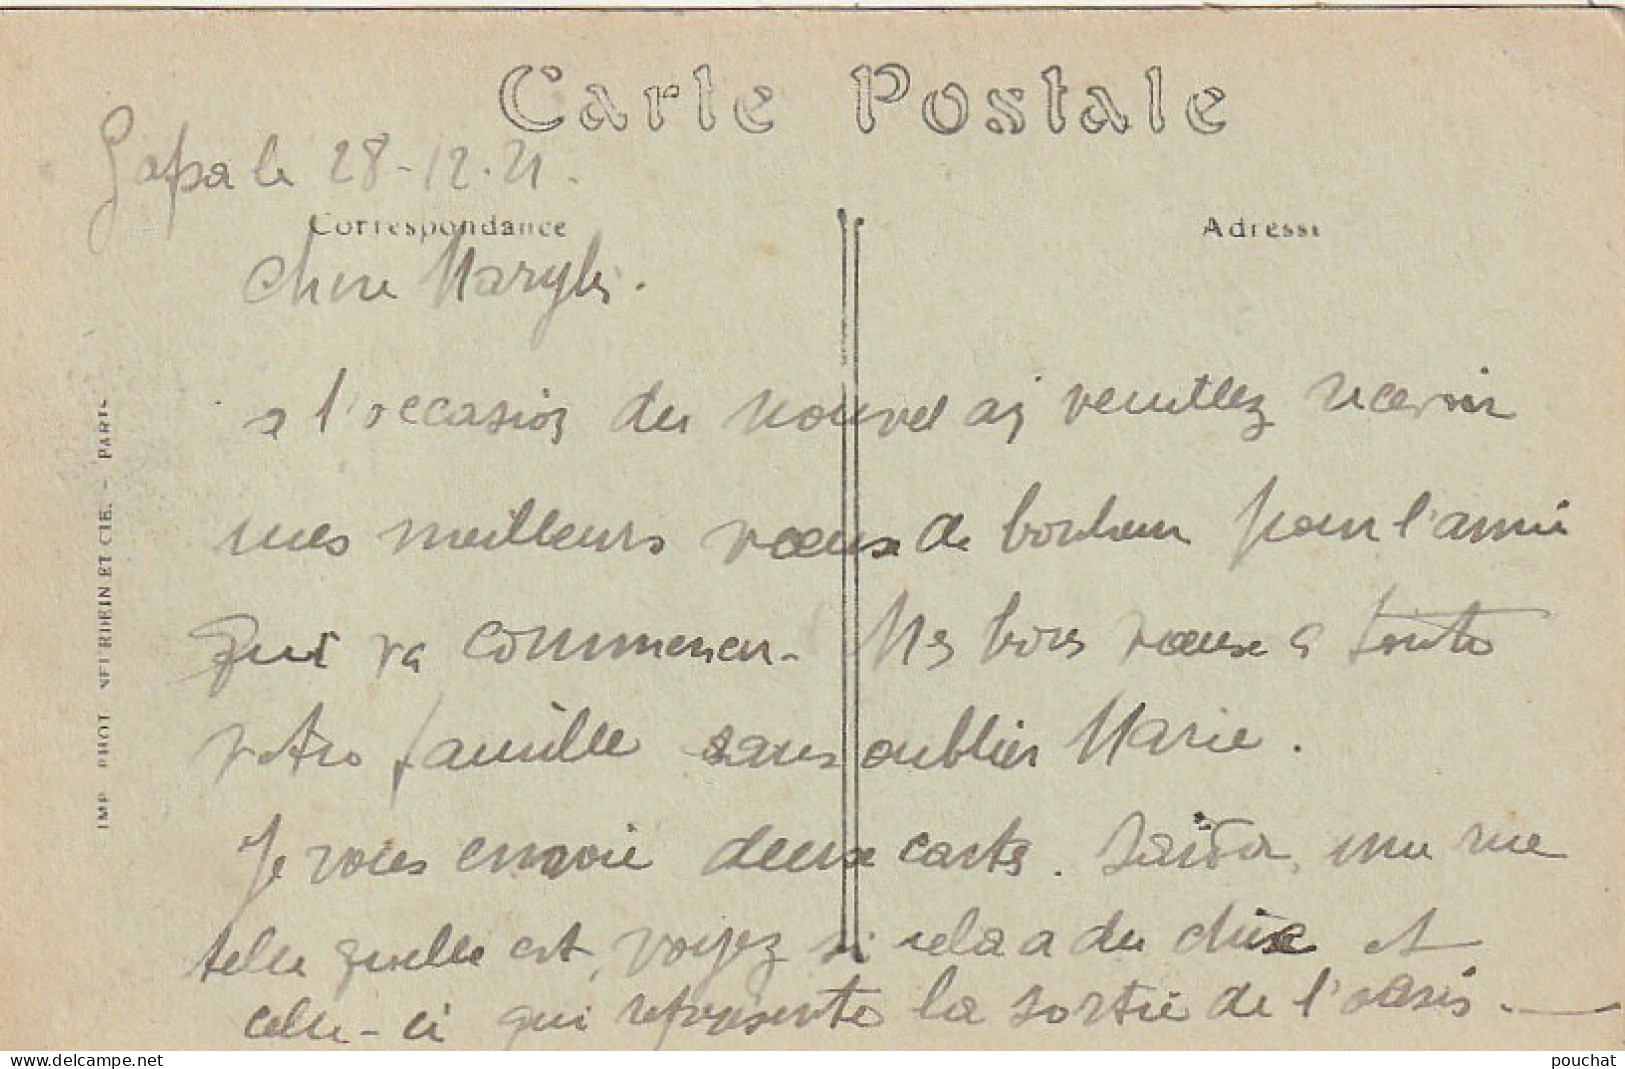 Carte Postale
Gafsa le 28-12-21.
Correspondance
Adresse
Chère Marylis.
a l'occasion du nouvel an veuillez recevoir
mes meilleurs voeux de bonheur pour l'année
qui va commencer. Mes bons voeux a toute
votre famille sans oublier Marie.
Je vous envoie deux cartes. une rue
telle quelle est, voyez si cela a du chic et
celle-ci qui représente la sortie de l'oasis.
IMP. PHOT. NEURDEIN ET CIE. - PARIS
www.delcampe.net
pouchat